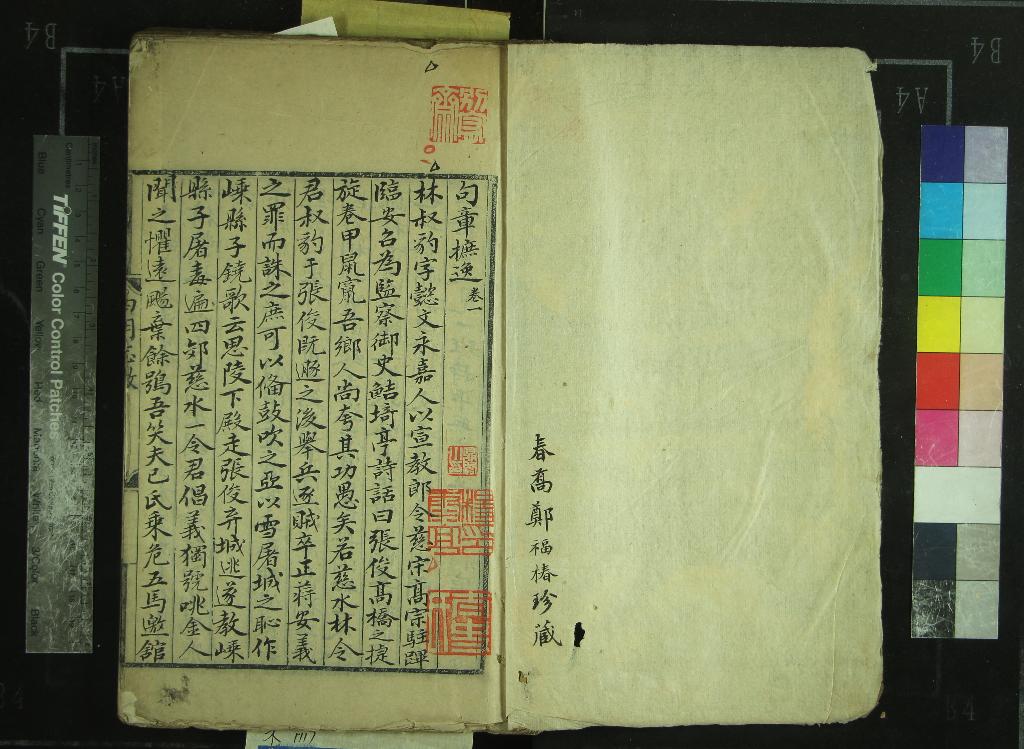 春喬鄭福椿珍藏
句章摭逸 卷一
林叔豹字懿文永嘉人以宣教郎令慈宋高宗駐蹕
臨安召為監察御史鮚埼亭詩話曰張俊高橋之捷
旋卷甲鼠竄吾鄉人尚夸其功愚矣若慈水林令
君叔豹于張俊既遯之後舉兵逐賊卒正蔣安義
之罪而誅之庶可以備鼓吹之亞以雪屠城之恥作
嵊縣子鐃歌云思陵下殿走張俊弃城逃遂教嵊
縣子屠毒遍四郊慈水一令君倡義獨號咷金人
聞之懼遠颺棄餘鴞吾笑夫己氏乘危五馬邀館
B4
A4
B4
A4
B4
TIFFEN Color Control Patches
Centimetres
Blue
Cyan
Green
Yellow
Red
Magenta
White
3/Color
Black